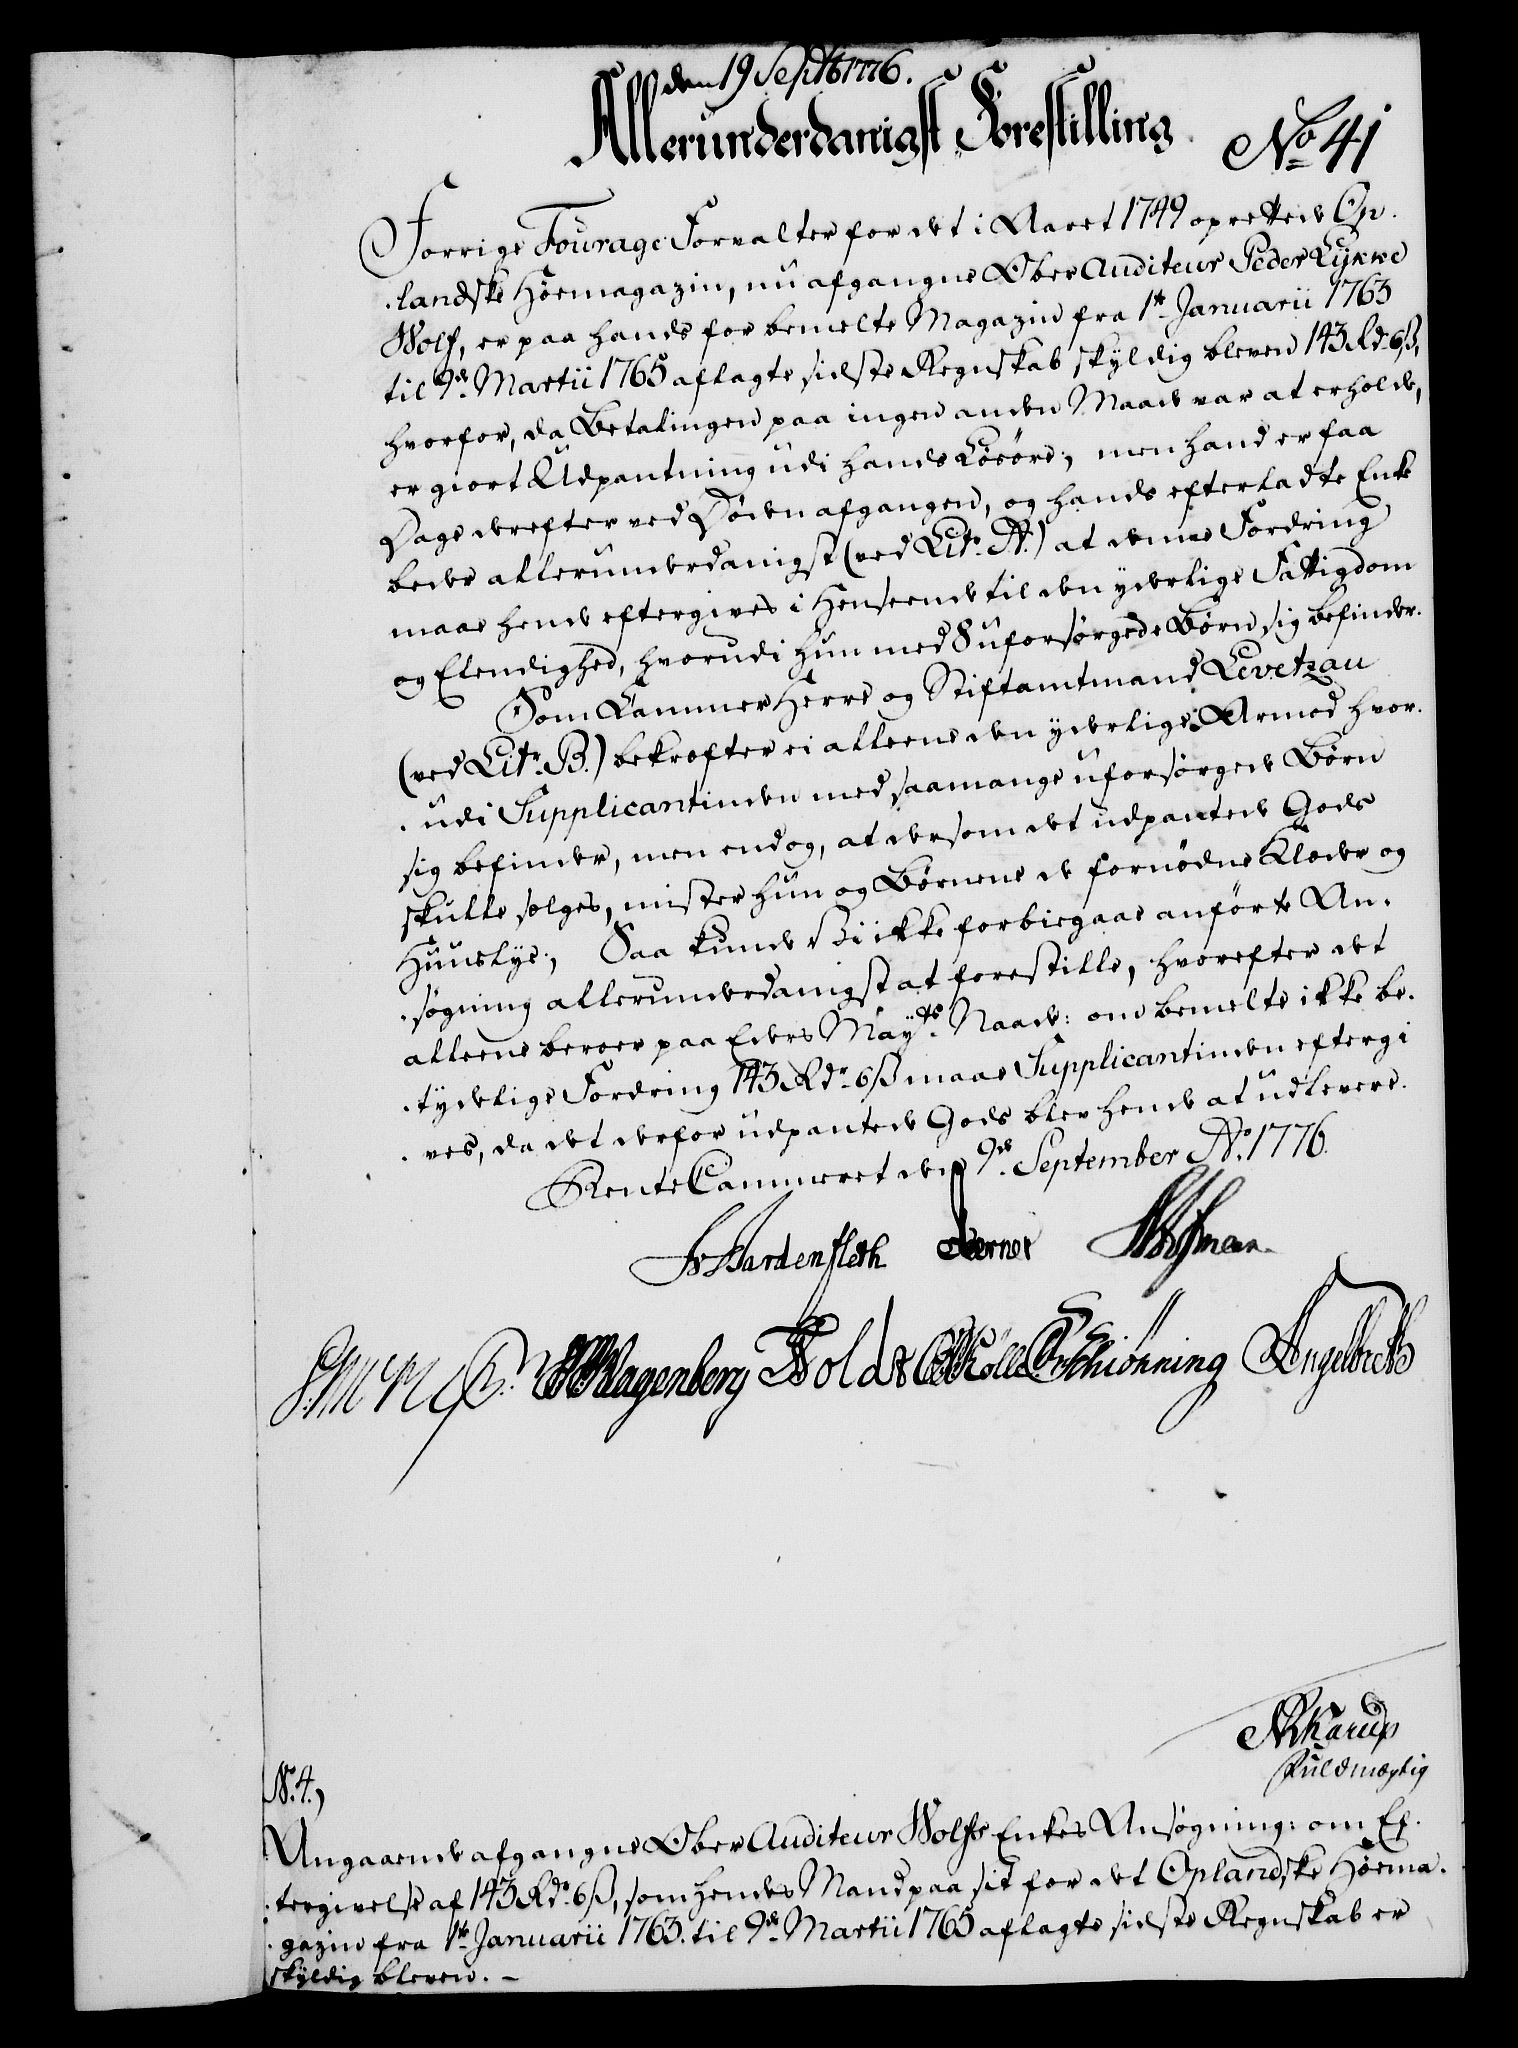 den 19 Septb 1776.
Allerunderdanigst Forestilling.
No 41
Forrige Fourage Forvalter for det i Aaret 1749 oprettede Op-
landske Höemagazin, nu afgangne Ober Auditeur Peder Lykke
Wolf, er paa hands for bemelte Magazin fra 1te Januarii 1763
til 9de Martii 1765 aflagte sidste Regnskab skyldig bleven 143 Rdr 6 ß,
hvorfor, da Betalingen paa ingen anden Maade var at erholde,
er giort Udpantning udi hands Lösöre; men hand er faa
Dage derefter ved Döden afgangen, og hands efterladte Enke
beder allerunderdanigst (ved Litr. A.) at denne Fordring
maae hende eftergives i Henseende til den yderlige Fattigdom
og Elendighed, hvorudi hun med 8 uforsörgede Börn sig befinder.
Som Cammer Herre og Stiftamtmand Levetzau
(ved Litr. B.) bekræfter ei alleene den yderlige Armod hvor-
udi Supplicantinden med saa mange uforsörgede Börn
sig befinder, men endog, at dersom det udpantede Gods
skulle sælges, mister hun og Börnene de fornödne Klæder og
Huuslye; Saa kunde Vi ikke forbiegaae anförte An-
sögning allerunderdanigst at forestille, hvorefter det
alleene beroer paa Eders Mayts Naade: om bemelte ikke be-
tydelige Fordring 143 Rdr 6 ß maae Supplicantinden eftergi
ves, da det derfor udpantede Gods blev hende at udlevere.
Rente Cammeret den 9de September Ao 1776.
Fr Bardenfleth Berner Hofman
Wagenberg Holdt Kölle Schiönning Engelbreth
Aarup
Fuldmægtig
N. 4,
Angaaende afgangne Ober Auditeur Wolfs Enkes Ansögning: om Ef-
tergivelse af 143 Rdr 6 ß, som hendes Mand paa sit for det Oplandske Höema-
gazin fra 1te Januarii 1763. til 9de Martii 1765 aflagte sidste Regnskab er
skyldig bleven. -